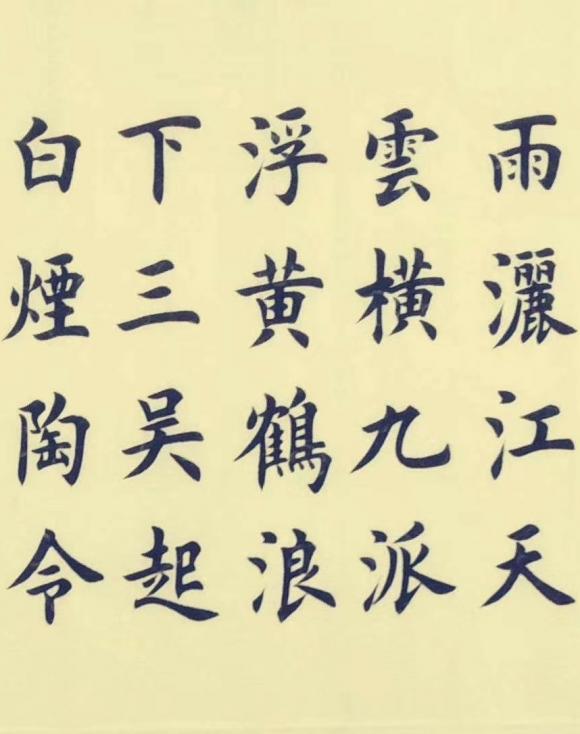 雨灑江天
雲橫九派
浮黄鶴浪
下三吴起
白煙陶令